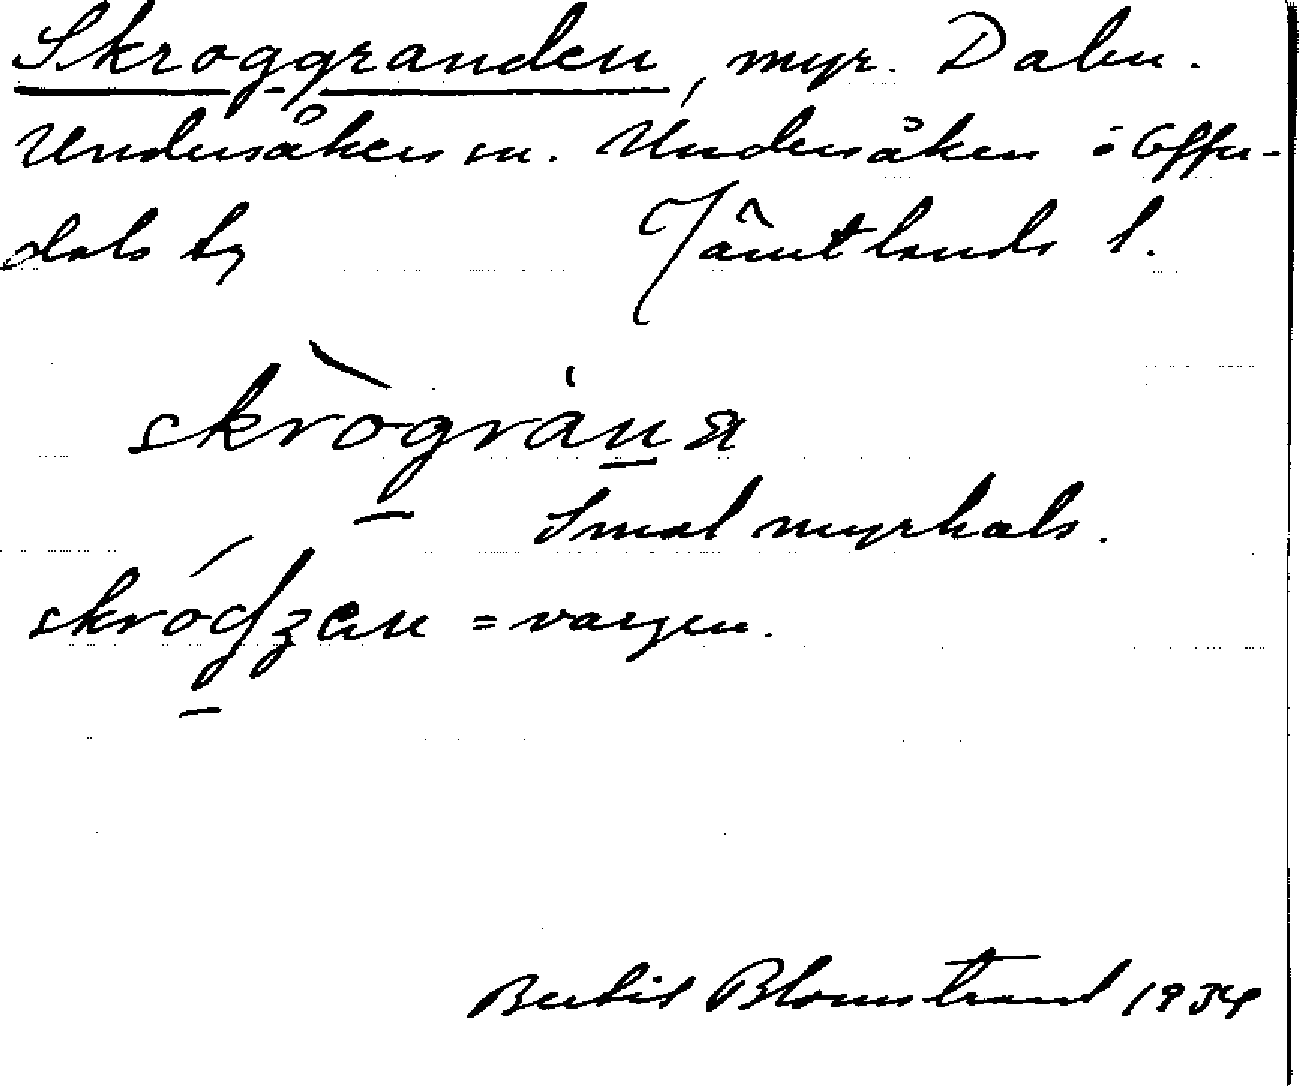 Skroggranden, myr. Dalen.
Undersåkers sn. Undersåkers
dals tg Jämtlands l.
skrògràna
Smal myrhals.
= vargen.
Bertil Blomstrand 1934